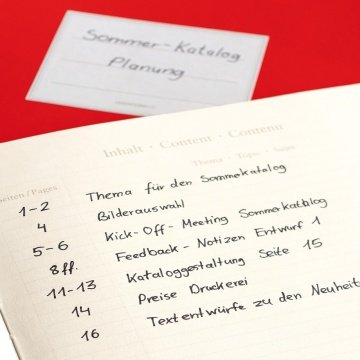 Sommer-Katalog
Planung
Inhalt · Content · Contenu
Thema · Topic · Sujet
Seiten/Pages
1-2 Thema für den Sommekatalog
4 Bilderauswahl
5-6 Kick-Off-Meeting Sommerkatalog
8ff. Feedback-Notizen Entwurf 1
11-13 Kataloggestaltung Seite 15
14 Preise Druckerei
16 Textentwürfe zu den Neuheit